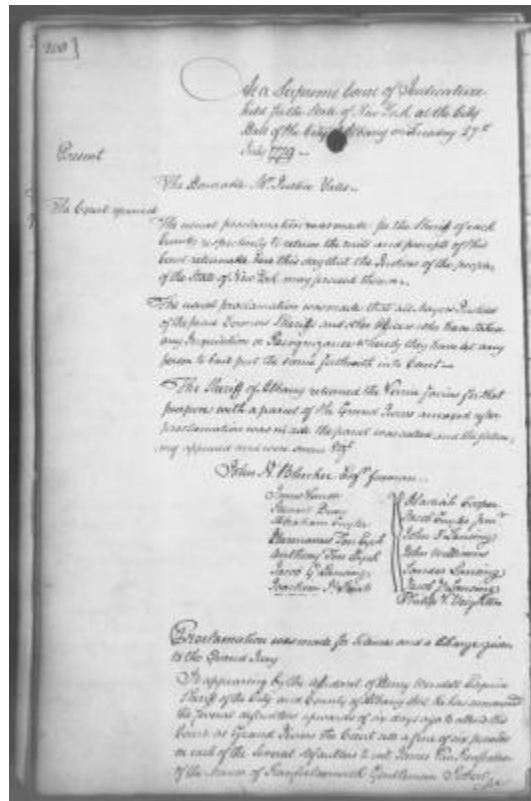 200
At a Supreme Court of Judicature
held for the State of New York at the City
Hall of the City of Albany on Tuesday 27th
July 1779 –
Present
The Honorable Mr Justice Yates –
The Court opened
The usual proclamation was made for the Sheriff of each
County respectively to return the writs and precepts of this
Court returnable here this day that the Justices of the people
of the State of New York may proceed thereon –
The usual proclamation was made that all Mayors Justices
of the peace Coroners Sheriffs and other Officers who have taken
any Inquisition or Recognizance whereby they have let any
person to bail put the same forthwith into Court –
The Sheriff of Albany returned the Venire facias for that
purpose with a panel of the Grand Jurors annexed after
proclamation was made the panel was called and the follow
ing appeared and were sworn Vizt
John N. Bleecker Esqr foreman
Abraham Cuyler
Harmanus Ten Eyck
Anthony Ten Eyck
Jacob G. Lansing
Obadiah Cooper
Jacob Cuyler Junr
John Lansing
John Williams
Sander Lansing
Jacob Lansing
Philip
Proclamation was made for Silence and a Charge given
to the Grand Jury
It appearing by the affidavit of Henry Wendell Esquire
Sheriff of the City and County of Albany that he has summoned
the several defaulters upwards of six days ago to attend this
Court as Grand Jurors the Court sets a fine of six pounds
on each of the several defaulters to wit James Van Rensselaer
of the Manor of Rensselaerwick Gentleman Robert